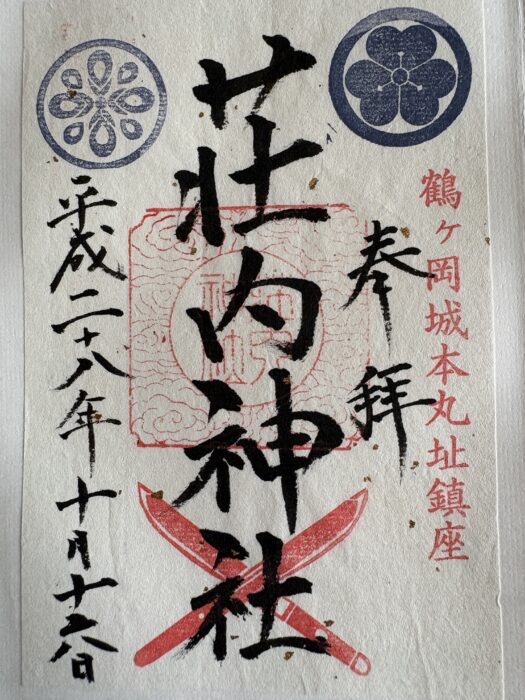 鶴ヶ岡城本丸址鎮座
奉拝
荘内神社
平成二十八年十月十六日